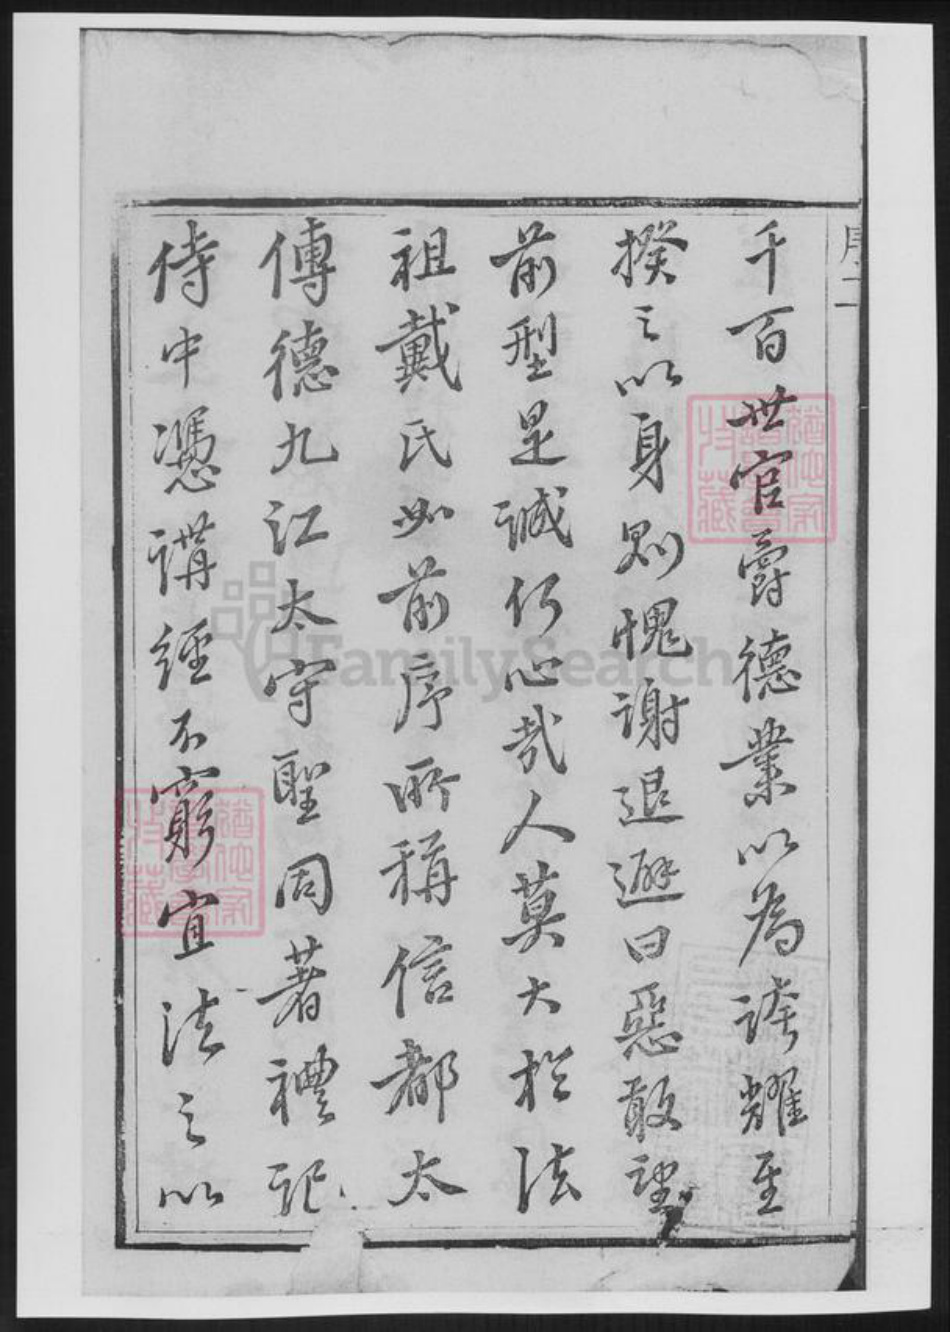 序二
千百世官爵德業以為誇耀至
揆之以身則愧謝退避曰惡敢望
前型是誠何心哉人莫大於法
祖戴氏如前序所稱信都太
傅德九江太守聖同著禮記
侍中憑講經不窮宜法之以
FamilySearch